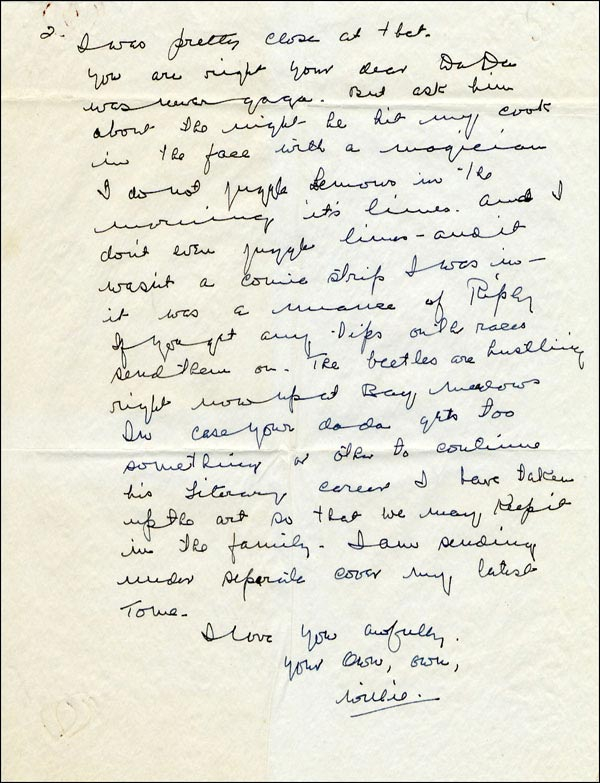 2. I was pretty close at that.
you are right your dear DaDa
was never gaga. But ask him
about the night he hit my cook
in the face with a magician
I do not juggle Lemons in the
morning it's limes. and I
don't even juggle limes - and it
wasn't a comic strip I was in -
it was a nuance of Riply
If you get any tips on the races
send them on. The beetles are hustling
right now up at Bay Meadows
In case your dada gets too
something or other to continue
his Literary career I have taken
up the art so that we may Keep it
in the family. I am sending
under seperate cover my latest
Tome.
I love you awfully.
your Own, own,
Willie.